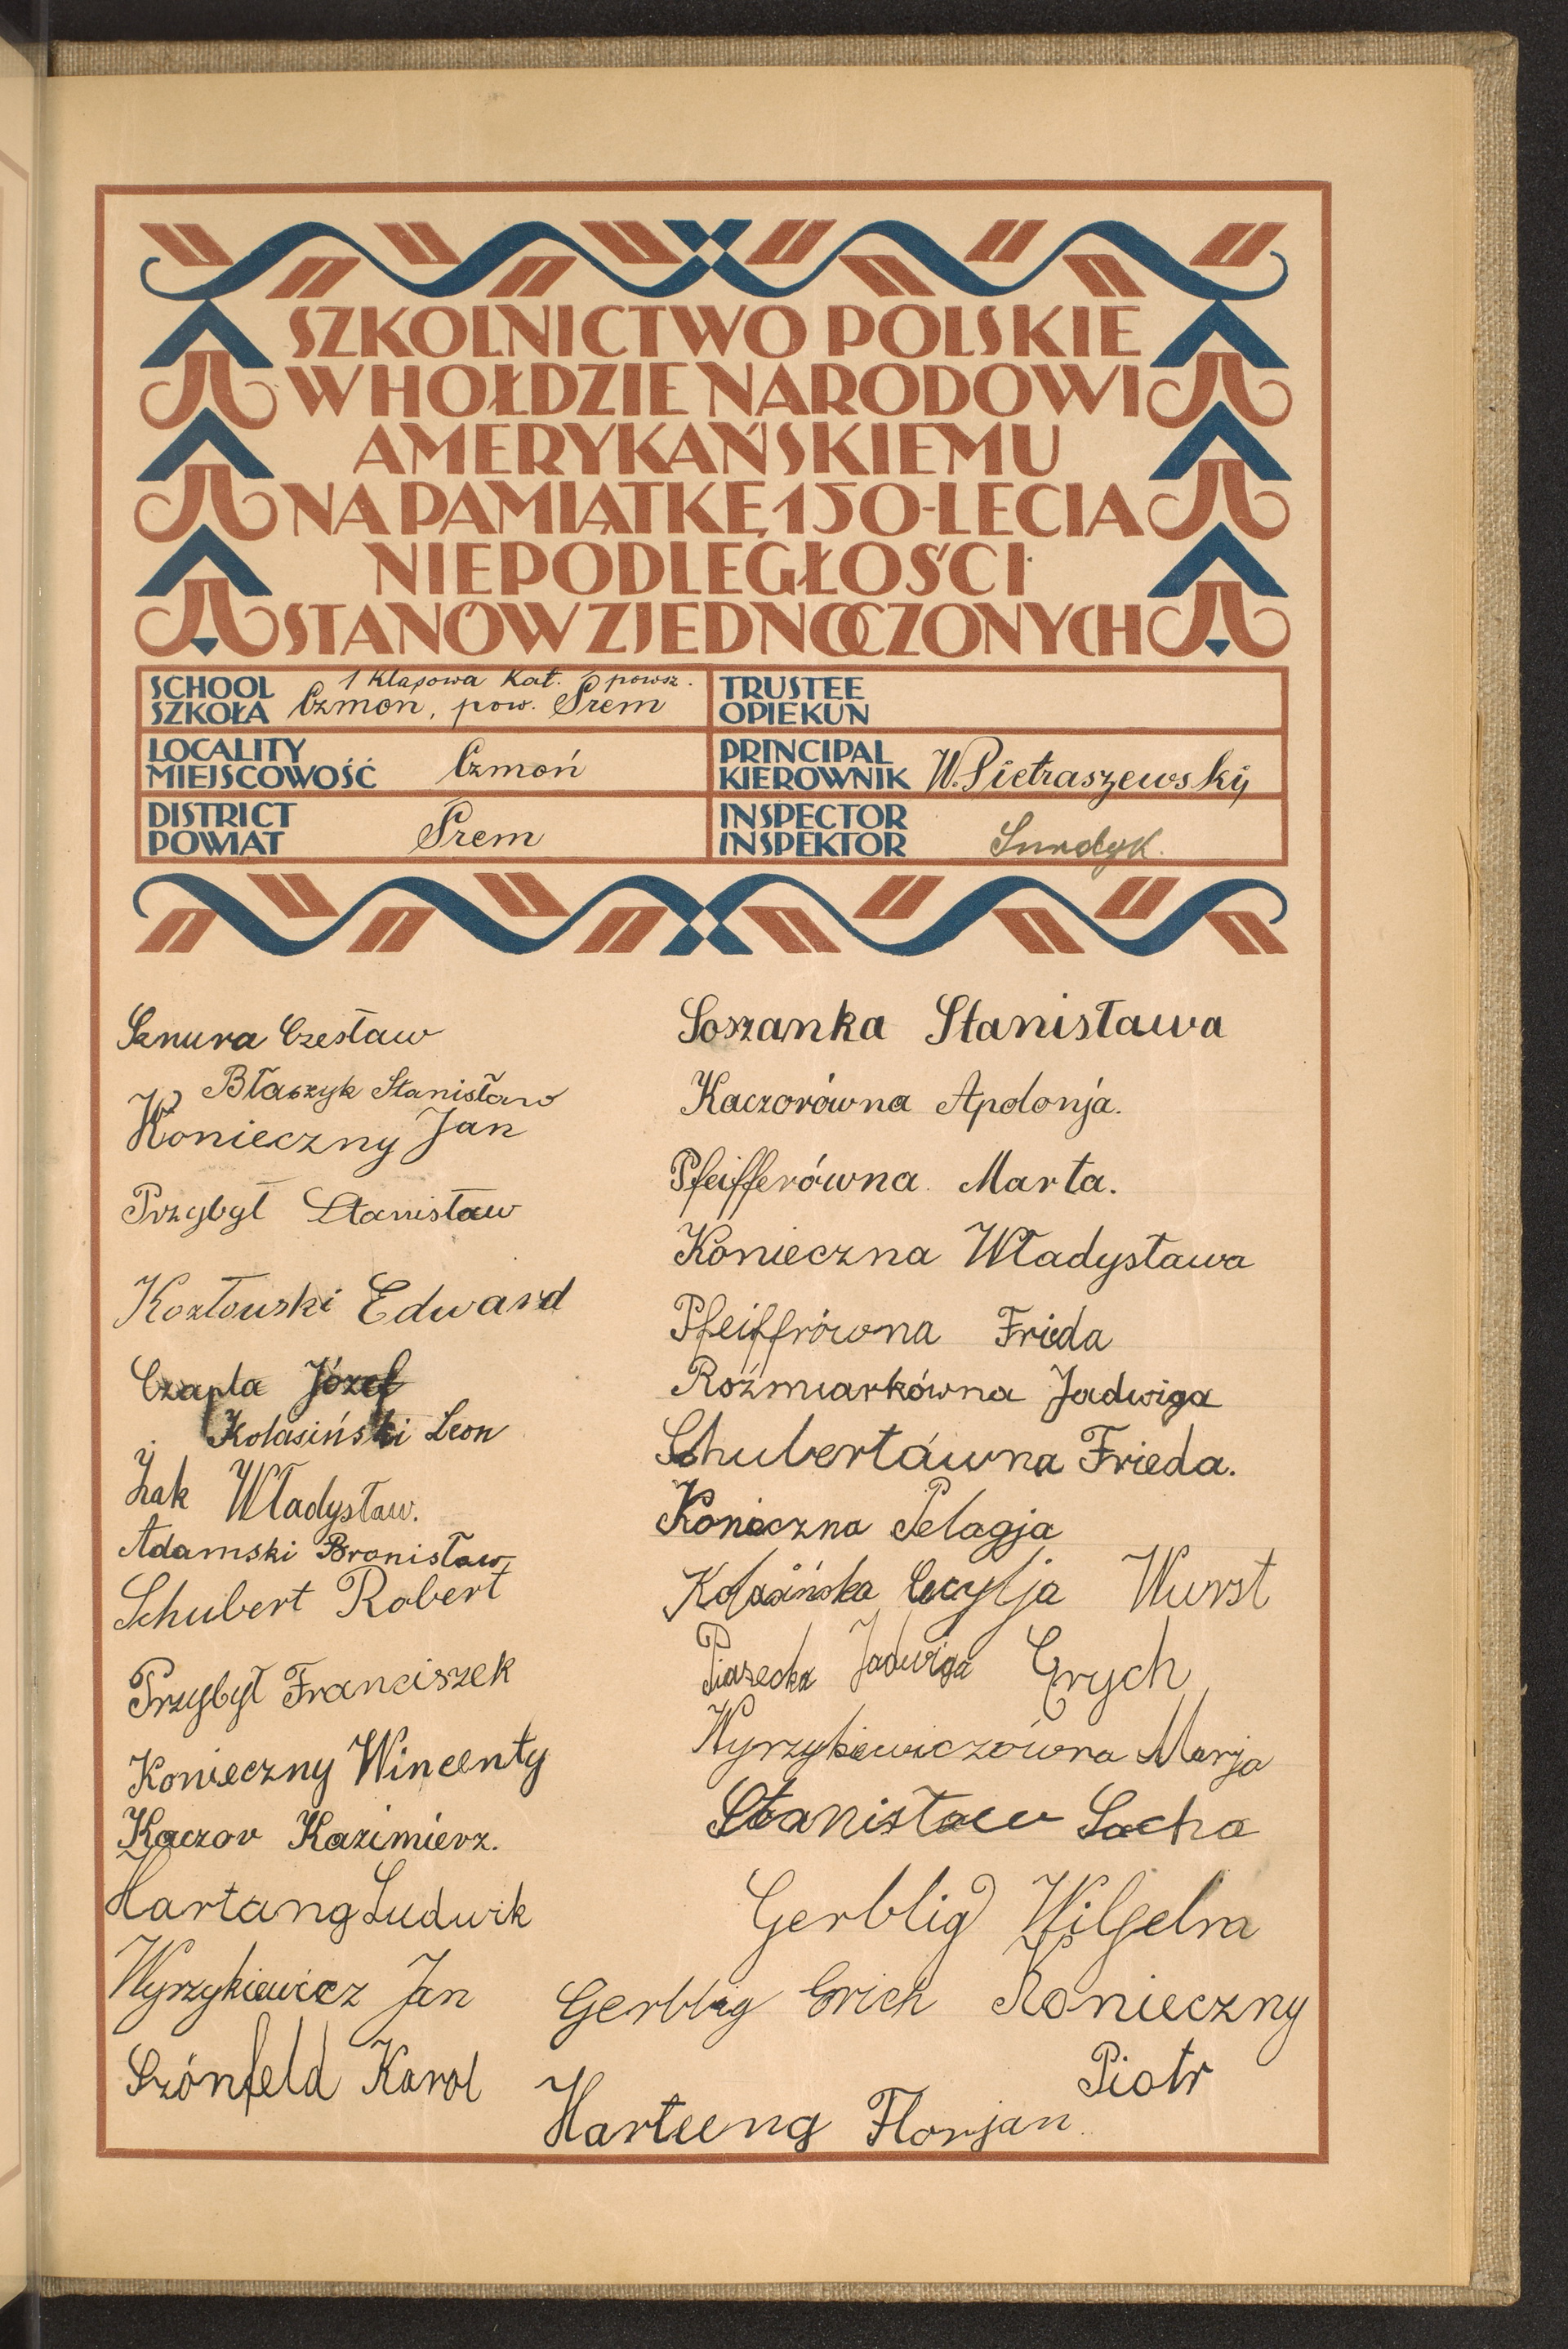 SZKOLNICTWO POLSKIE
W HOŁDZIE NARODOWI
AMERYKAŃSKIEMU
NA PAMIĄTKĘ 150-LECIA
NIEPODLEGŁOŚCI
STANÓW ZJEDNOCZONYCH
SCHOOL
SZKOŁA
1 klasowa kat. powsz.
Czmoń, pow. Śrem
TRUSTEE
OPIEKUN
LOCALITY
MIEJSCOWOŚĆ
Czmoń
PRINCIPAL
KIEROWNIK
W. Pietraszewskij
DISTRICT
POWIAT
Śrem
INSPECTOR
INSPEKTOR
Surdyk.
Sznura Czesław
Błaszyk Stanisław
Konieczny Jan
Przybył Stanisław
Kozłowski Edward
Czapla Józef
Kolasiński Leon
Żak Władysław.
Adamski Bronisław
Schubert Robert
Przybył Franciszek
Konieczny Wincenty
Kaczor Kazimierz.
Hartang Ludwik
Wyrzykiewicz Jan
Szönfeld Karol
Soszanka Stanisława
Kaczorówna Apolonja.
Pfeifferówna Marta.
Konieczna Władysława
Pfeiffrówna Frieda
Roźmiarkówna Jadwiga
Schubertówna Frieda.
Konieczna Pelagja
Kolasińska Cecylja Wurst
Piasecka Jadwiga Grych
Wyrzykiewiczówna Marja
Stanisław Socha
Gerblig Wilhelm
Gerblig Erich Konieczny
Piotr
Harteeng Florjan.